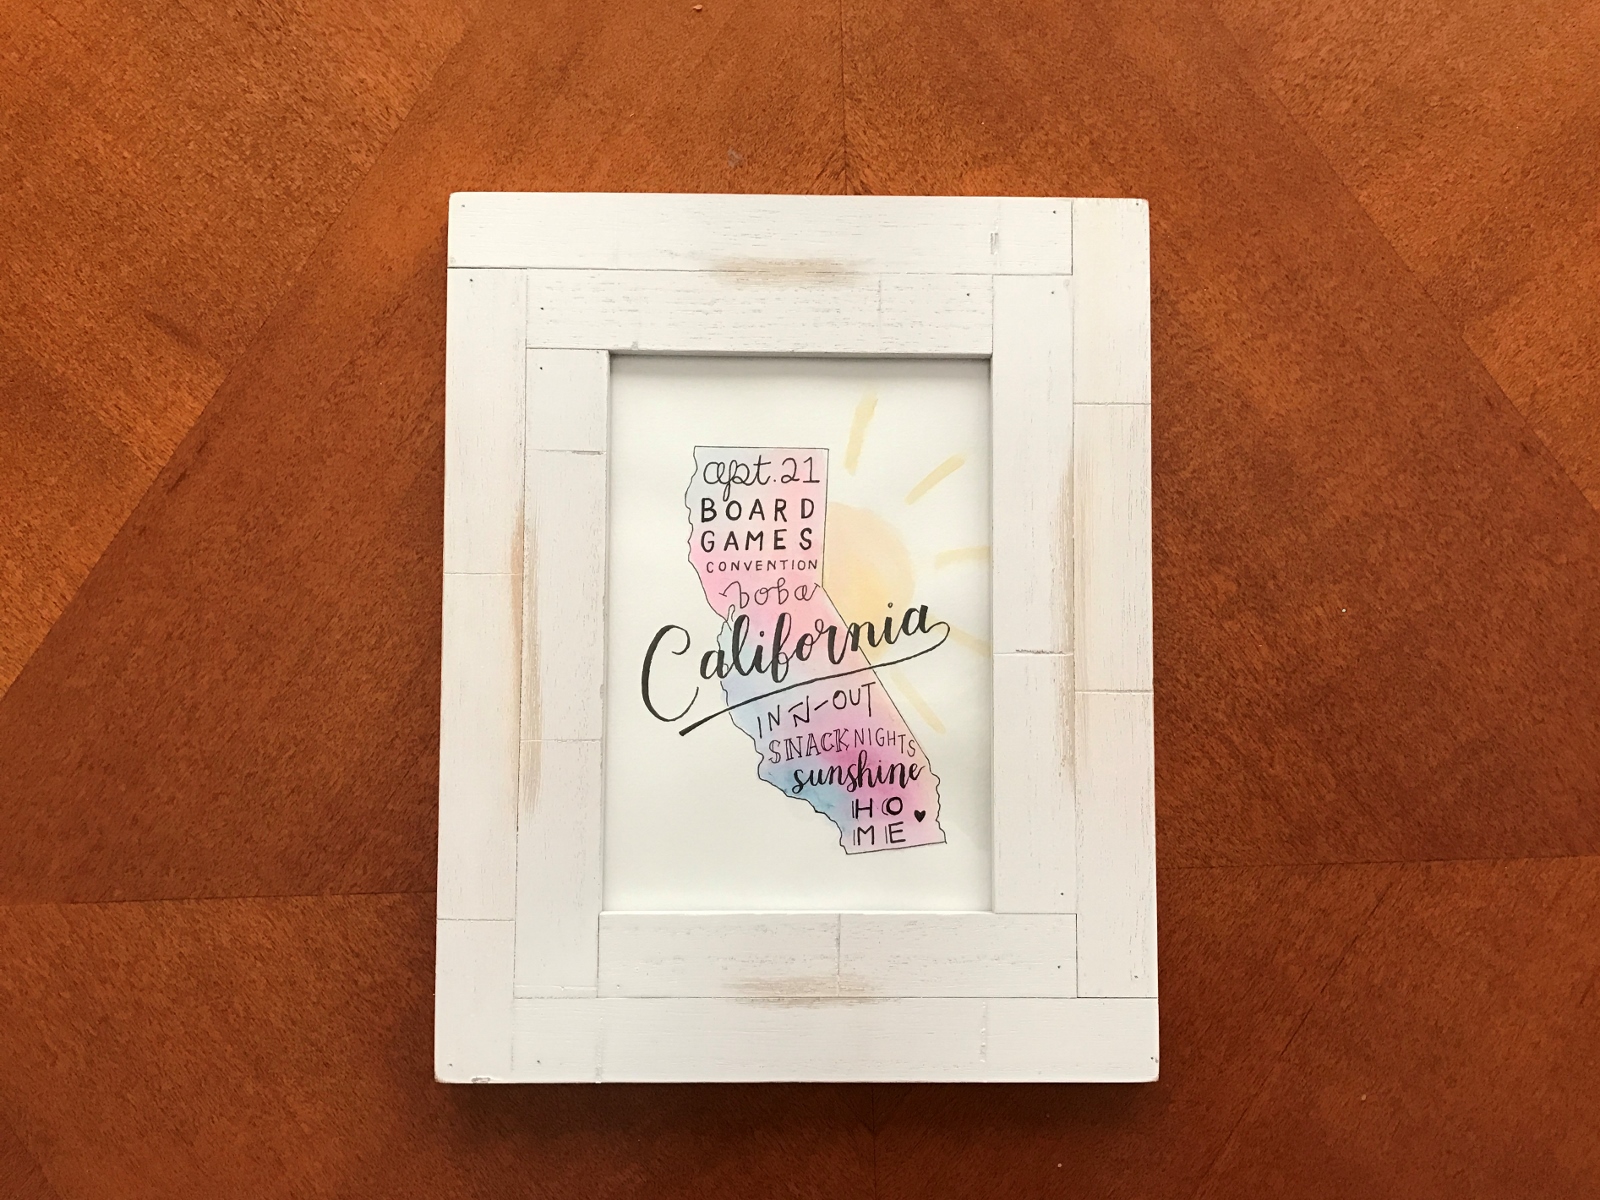 apt. 21
BOARD
GAMES
CONVENTION
boba
California
IN-N-OUT
SNACK NIGHTS
sunshine
HO
ME